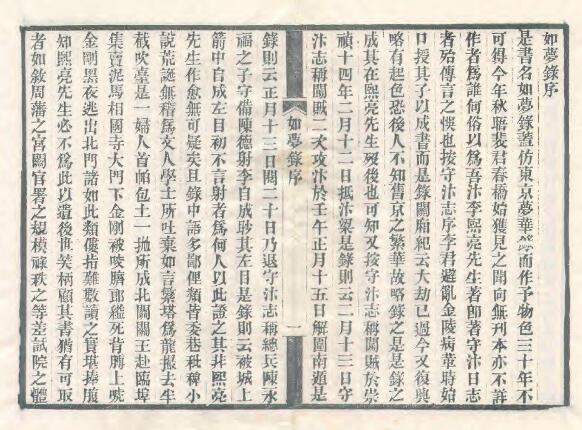 如夢錄序
是書名如夢錄蓋仿東京夢華錄而作予物色三十年不
可得今年秋聆裴君春橋始獲見之開向無刊本亦不詳
作者為誰何俗以為吾汴李熙亮先生著卽著守汴日志
者殆傳言之悞也按守汴志序李君避亂金陵病革時始
口授其子以成書而是錄開廂紀云大劫已過今又復興
略有起色恐後人不知舊京之繁華故略錄之是是錄之
成其在熙亮先生歿後也可知又按守汴志稱闖賊於崇
禎十四年二月十二日抵汴梁是錄則云二月十三日守
汴志稱闖賊二次攻汴於壬午正月十五日解圍南遁是
如夢錄序
一
錄則云正月十三日闖二十日乃退守汴志稱總兵陳永
福之子守備陳德射李自成眇其左目是錄則云被城上
箭中自成左目初不言射者為何人以此證之其非熙亮
先生作愈無可疑矣且錄中語多鄙俚類皆委巷秕稗小
說荒誕無稽為文人學士所吐棄如言繁塔為龍撤去半
截吹臺是一婦人首帕包土一拋所成北關關王赴臨埠
集賣泥馬相國寺大門下金剛被咬臍郎縊死背膊上唬
金剛黑夜逃出北門諸如此類僂指難數讀之實堪捧腹
知熙亮先生必不為此以遺後世笑柄顧其書猶有可取
者如敘周藩之宮闕官署之規模祿秩之等差試院之體